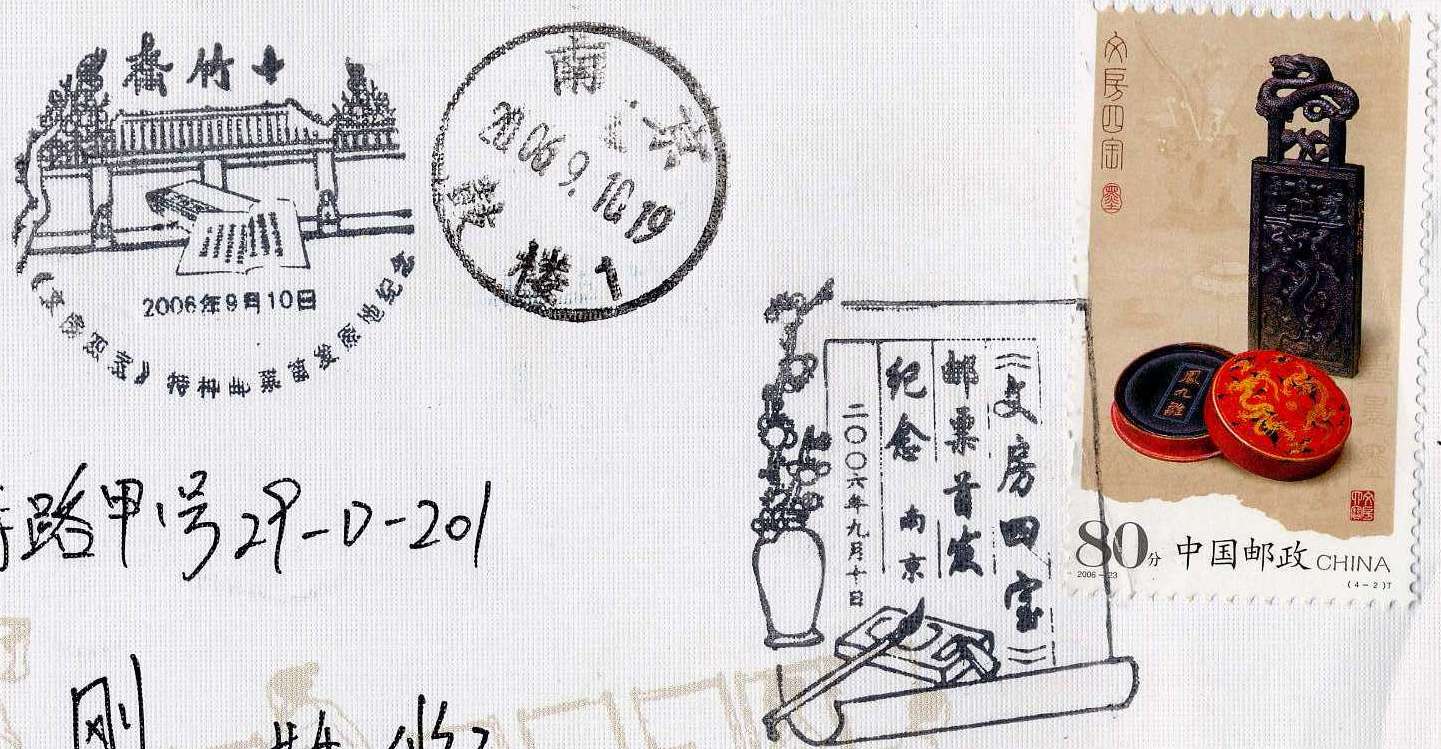 十竹斋
2006年9月10日
《文房四宝》特种邮票首发原地纪念
南京
2006.9.10.19
鼓楼 1
《文房四宝》
邮票首发
纪念 南京
二〇〇六年九月十日
文房四宝
墨
鳳九雛
80分 中国邮政 CHINA
2006-23
(4-2)T
路甲1号29-D-201
刚